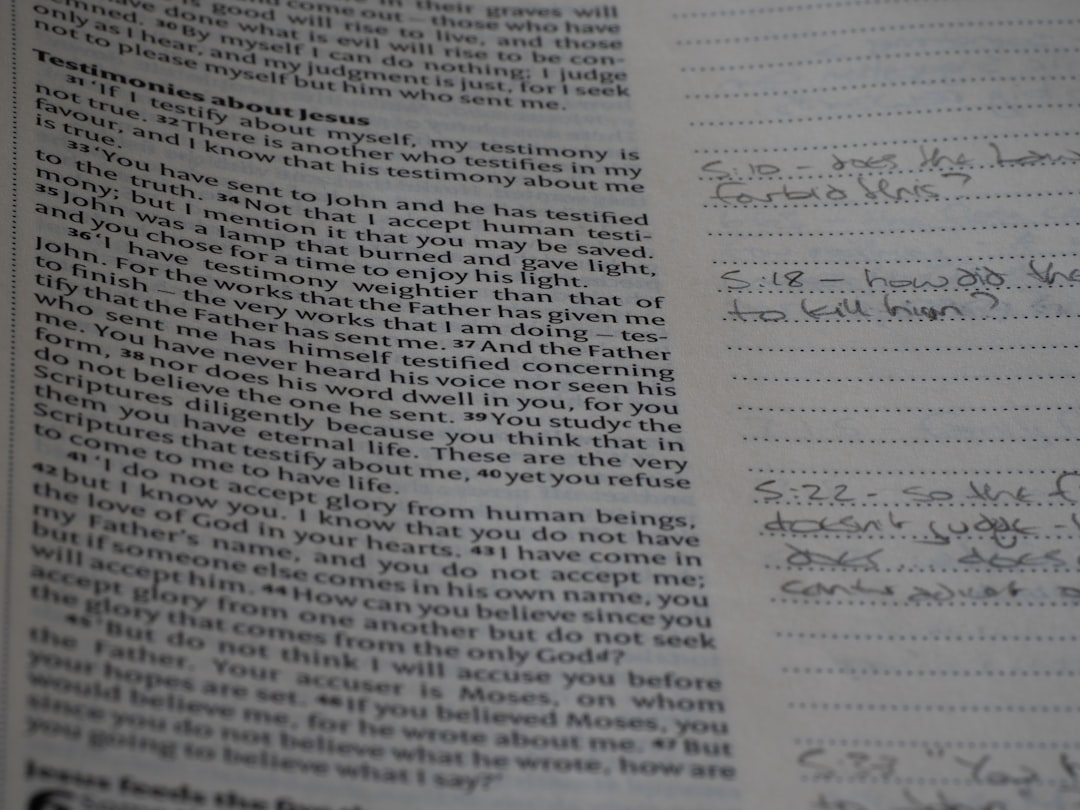 in their graves will
and come out – those who have
is good will rise to live, and those
have done what is evil will rise to be con-
emned. 30 By myself I can do nothing; I judge
only as I hear, and my judgment is just, for I seek
not to please myself but him who sent me.
Testimonies about Jesus
31 ‘If I testify about myself, my testimony is
not true. 32 There is another who testifies in my
favour, and I know that his testimony about me
is true.
33 ‘You have sent to John and he has testified
to the truth. 34 Not that I accept human testi-
mony; but I mention it that you may be saved.
35 John was a lamp that burned and gave light,
and you chose for a time to enjoy his light.
36 ‘I have testimony weightier than that of
John. For the works that the Father has given me
to finish – the very works that I am doing – tes-
tify that the Father has sent me. 37 And the Father
who sent me has himself testified concerning
me. You have never heard his voice nor seen his
form, 38 nor does his word dwell in you, for you
do not believe the one he sent. 39 You study c the
Scriptures diligently because you think that in
them you have eternal life. These are the very
Scriptures that testify about me, 40 yet you refuse
to come to me to have life.
41 ‘I do not accept glory from human beings,
42 but I know you. I know that you do not have
the love of God in your hearts. 43 I have come in
my Father’s name, and you do not accept me;
but if someone else comes in his own name, you
will accept him. 44 How can you believe since you
accept glory from one another but do not seek
the glory that comes from the only God d?
45 ‘But do not think I will accuse you before
the Father. Your accuser is Moses, on whom
your hopes are set. 46 If you believed Moses, you
would believe me, for he wrote about me. 47 But
since you do not believe what he wrote, how are
you going to believe what I say?’
Jesus feeds the
6
5:10 – does the
forbid this?
5:18 – how did the
to kill him?
5:22 – so the
doesn't judge –
does does
5:37 "You